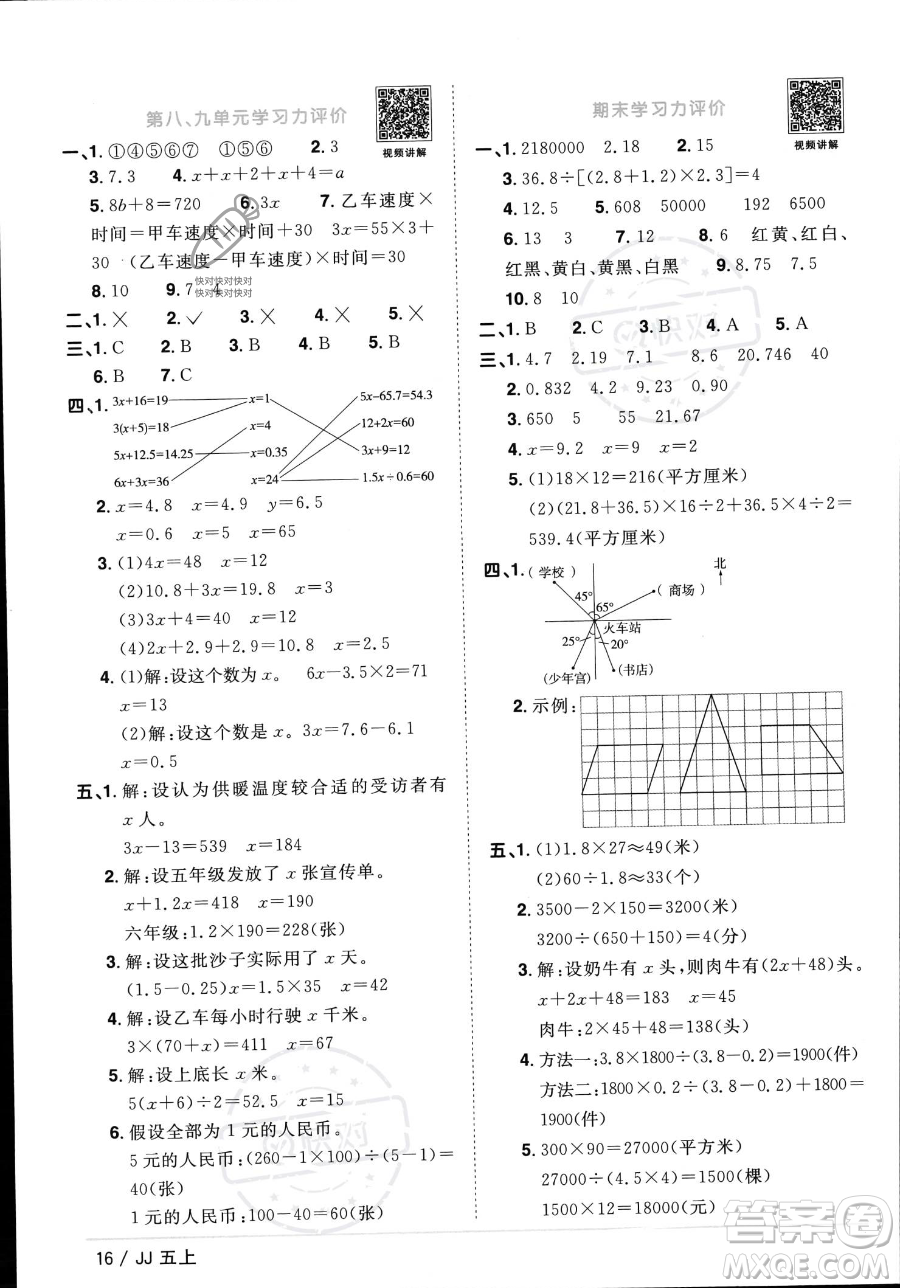 第八、九单元学习力评价
视频讲解
一、1. ①④⑤⑥⑦ ①⑤⑥ 2. 3
3. 7.3 4. x+x+2+x+4=a
5. 8b+8=720 6. 3x 7. 乙车速度×
时间=甲车速度×时间+30 3x=55×3+
30 (乙车速度-甲车速度)×时间=30
8. 10 9. 7 4
快对快对快对
快对快对快对
二、1. × 2. ✓ 3. × 4. × 5. ×
三、1. C 2. B 3. B 4. B 5. A
6. B 7. C
四、1. 3x+16=19 x=1 5x-65.7=54.3
3(x+5)=18 x=4 12+2x=60
5x+12.5=14.25 x=0.35 3x+9=12
6x+3x=36 x=24 1.5x÷0.6=60
2. x=4.8 x=4.9 y=6.5
x=0.6 x=5 x=65
3. (1)4x=48 x=12
(2)10.8+3x=19.8 x=3
(3)3x+x=40 x=10
(4)2x+2.9+2.9=10.8 x=2.5
4. (1)解:设这个数为 x。 6x-3.5×2=71
x=13
(2)解:设这个数是 x。 3x=7.6-6.1
x=0.5
五、1. 解:设认为供暖温度较合适的受访者有
x 人。
3x-13=539 x=184
2. 解:设五年级发放了 x 张宣传单。
x+1.2x=418 x=190
六年级:1.2×190=228(张)
3. 解:设这批沙子实际用了 x 天。
(1.5-0.25)x=1.5×35 x=42
4. 解:设乙车每小时行驶 x 千米。
3×(70+x)=411 x=67
5. 解:设上底长 x 米。
5(x+6)÷2=52.5 x=15
6. 假设全部为 1 元的人民币。
5 元的人民币:(260-1×100)÷(5-1)=
40(张)
1 元的人民币:100-40=60(张)
16 / JJ 五上
期末学习力评价
视频讲解
一、1. 2180000 2.18 2. 15
3. 36.8÷[(2.8+1.2)×2.3]=4
4. 12.5 5. 608 50000 192 6500
6. 13 3 7. 12 8. 6 红黄、红白、
红黑、黄白、黄黑、白黑 9. 8.75 7.5
10. 8 10
二、1. B 2. C 3. B 4. A 5. A
三、1. 4.7 2.19 7.1 20.746 40
2. 0.832 4.2 9.23 0.90
3. 650 5 55 21.67
4. x=9.2 x=9 x=6
5. (1)18×12=216(平方厘米)
(2)(21.8+36.5)×16÷2+36.5×4÷2=
539.4(平方厘米)
四、1. (学校) 北
(商场)
45° 65°
火车站
25° 20°
(少年宫) (书店)
2. 示例:
五、1. (1)1.8×27≈49(米)
(2)60÷1.8≈33(个)
2. 3500-2×150=3200(米)
3200÷(650+150)=4(分)
3. 解:设奶牛有 x 头,则肉牛有(2x+48)头。
x+2x+48=183 x=45
肉牛:2×45+48=138(头)
4. 方法一:3.8×1800÷(3.8-0.2)=1900(件)
方法二:1800×0.2÷(3.8-0.2)+1800=
1900(件)
5. 300×90=27000(平方米)
27000÷(3×6)=1500(棵)
1500×12=18000(元)
答案卷
MXQE.COM